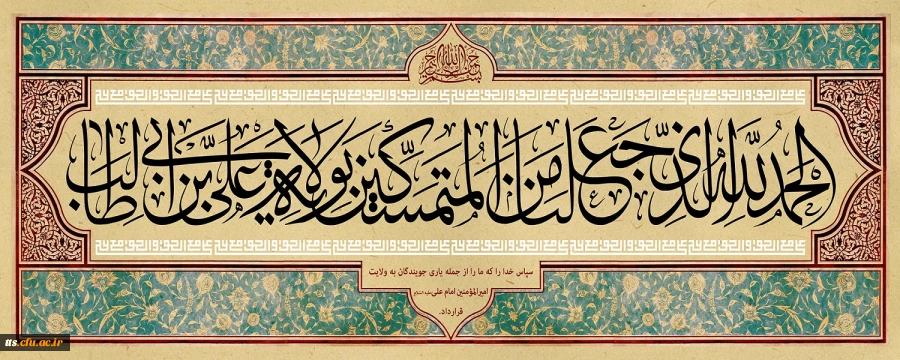 بسم الله الرحمن الرحیم
الحمد لله الذی جعلنا من المتمسکین بولایة علی بن ابی طالب
سپاس خدا را که ما را از جمله یاری جویندگان به ولایت
امیرالمؤمنین امام علی علیه السلام
قرارداد.
tts.cfu.ac.ir